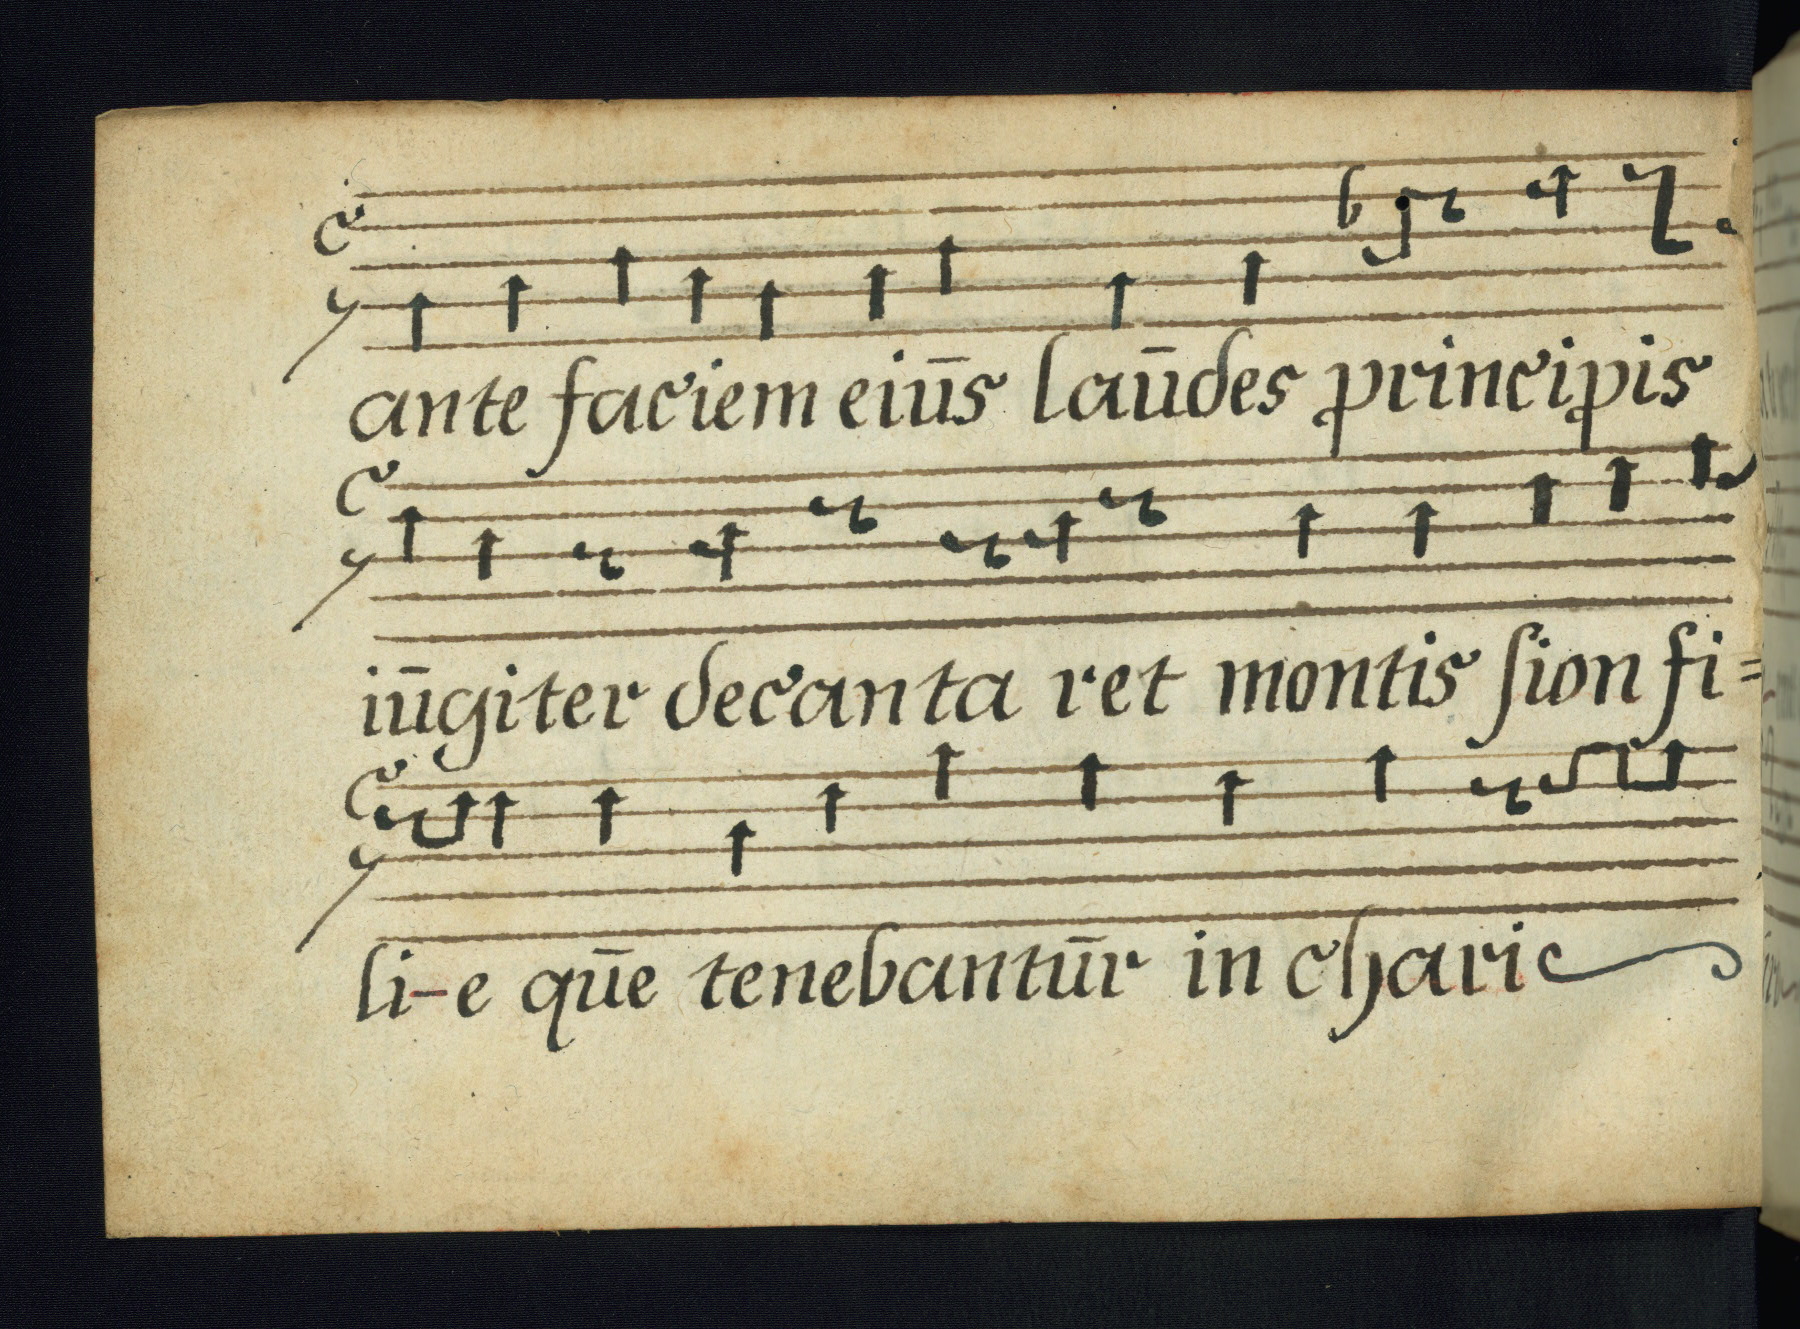 ante faciem eiūs laūdes principis
iūgiter decanta ret montis ſion fi=
li-e qūe tenebantūr in chari